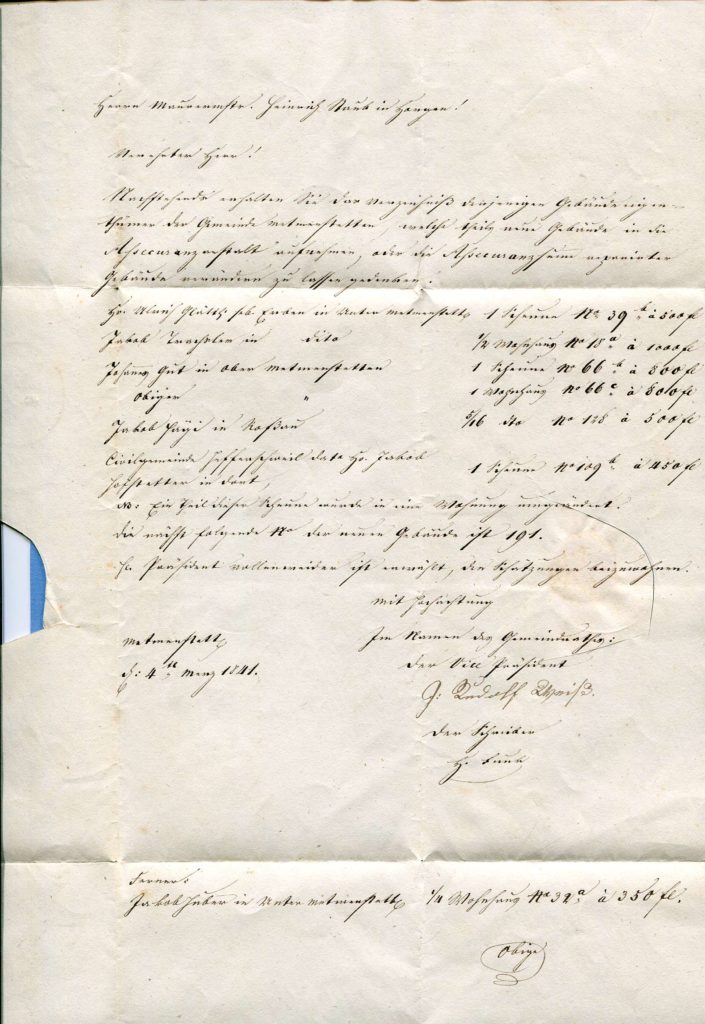 Herrn Maurermstr. Heinrich Staub in Horgen!
Verehrter Herr!
Nachstehends erhalten Sie das Verzeichniß derjenigen Gebäudeeigen=
thümer der Gemeinde Metmenstetten, welche theils neue Gebäude in die
Assecuranzanstalt aufnehmen, oder die Assecuranzsumme reparirter
Gebäude verändern zu lassen gedenken:
Hs. Ulrich sel. Erben in Unter Metmenstett 1 Scheune No 39 b à 500 fl
Jakob in dito 1/2 Wohnhaus No 18 a à 1000 fl
Johannes Gut in Ober Metmenstetten 1 Scheune No 66 b à 800 fl
Obiger " 1 Wohnhaus No 66 c à 800 fl
Jakob in Roßau dto No 128 à 500 fl
Civilgemeinde Hefferschweil dato Hs. Jakob
Hofstetter in dort, 1 Scheune No 109 b à 450 fl
NB: Ein Theil dieser Scheune wurde in eine Wohnung umgeändert.
Die nächst folgende No der neuen Gebäude ist 191.
Hr. Präsident Vollenweider ist erwählt, den Schatzungen beizuwohnen.
Mit Hochachtung
Metmenstett Im Namen des Gemeindrathes:
d: 4 te Merz 1841. Der Vice Präsident
J: Rudolf Weiß.
Der Schreiber
H.
Ferner:
Jakob Huber in Unter Metmenstett 1/4 Wohnhaus No 32 a à 350 fl.
Obige